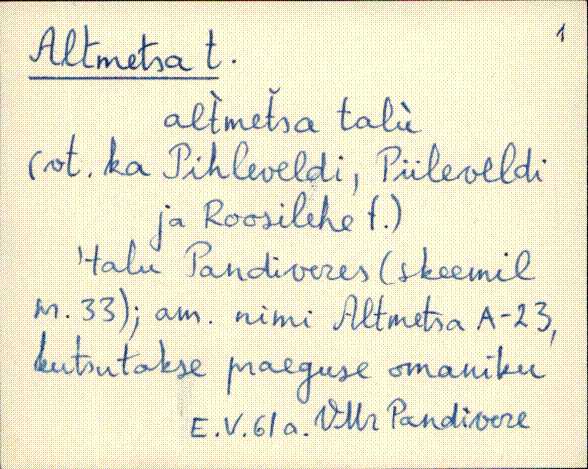 1
Altmetsa t.
al̀tmeťsa talù
(vt. ka Pihleveldi, Piileveldi
ja Roosilehe t.)
'talu Pandiveres (skeemil
nr. 33); am. nimi Altmetsa A-23,
kutsutakse praeguse omaniku
E.V. 61 a. VMr Pandivere